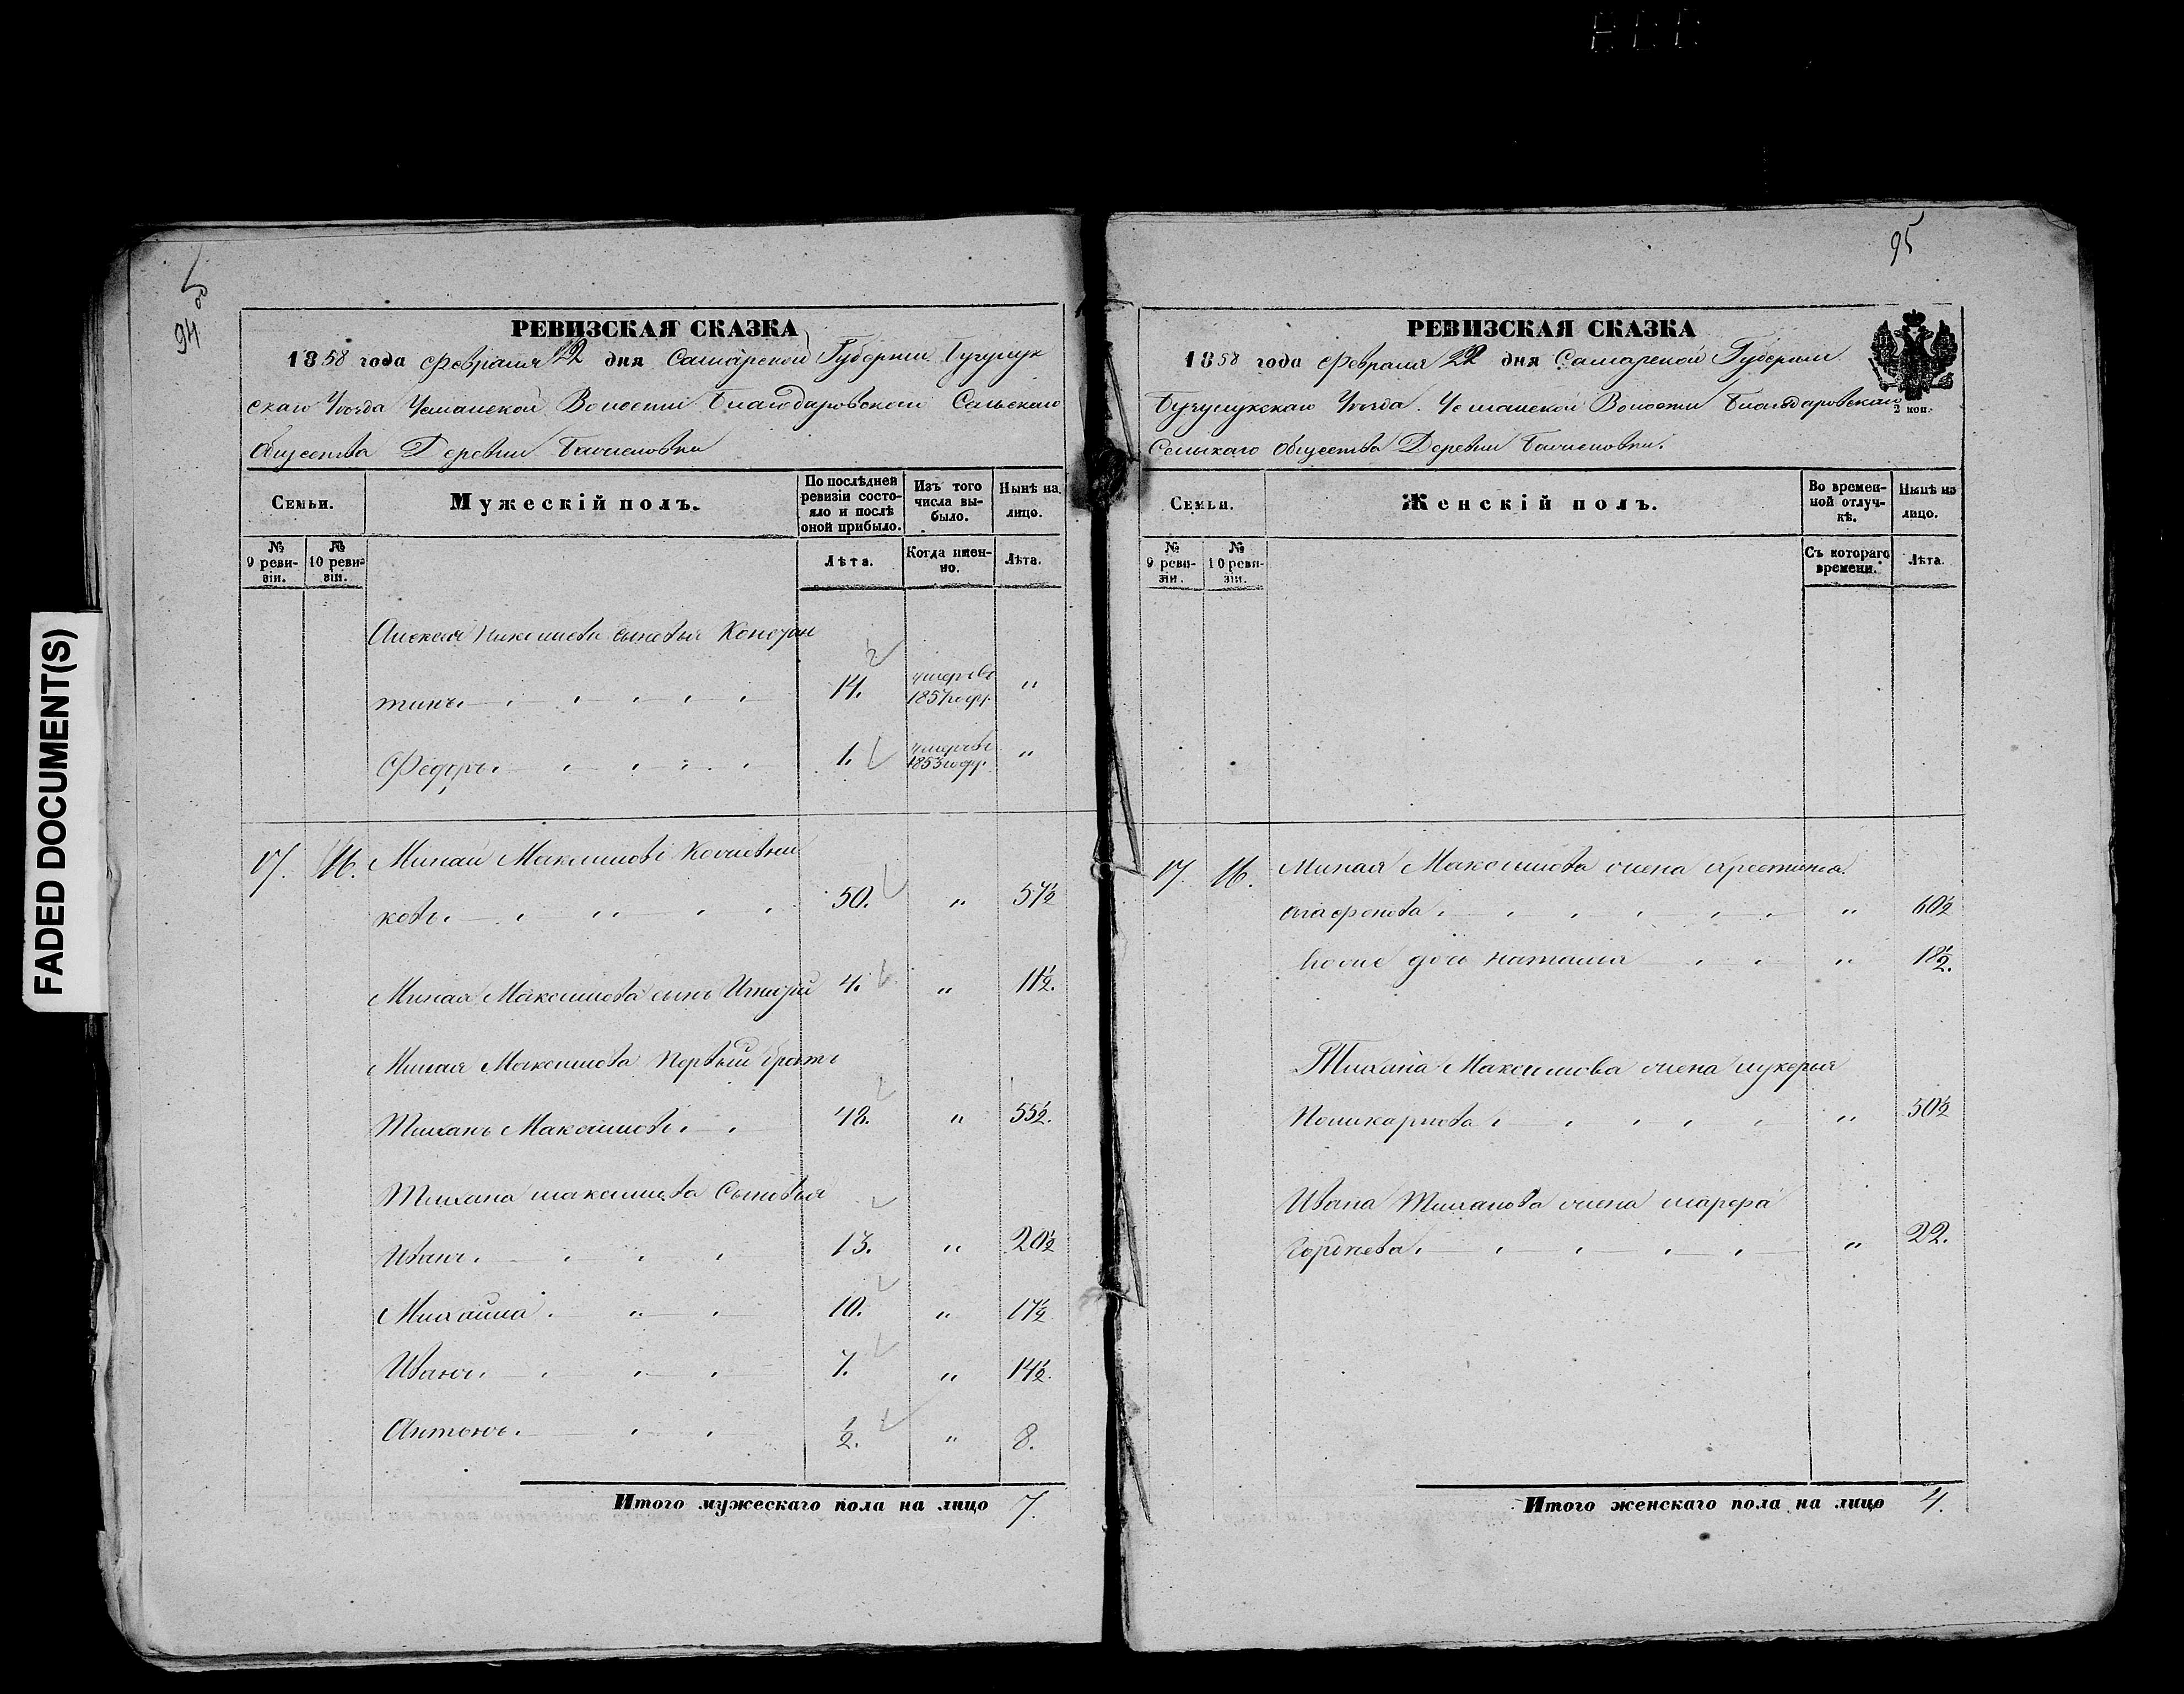 FADED DOCUMENT(S)
94
РЕВИЗСКАЯ СКАЗКА
1858 года Февраля 22 дня Самарской Губернии Бугурук
скаго Уѣзда Усманской Волости Благодаровскаго Сельскаго
общества Деревни
Семьи.
Мужескій полъ.
По послѣдней ревизіи состояло и послѣ оной прибыло.
Изъ того числа выбыло.
Нынѣ на лицо.
№ 9 ревизіи.
№ 10 ревизіи.
Лѣта.
Когда именно.
Лѣта.
Алексея Николаева сыновья Констан
тинъ 14. умеръ въ 1857 году. "
Федоръ 1. умеръ въ 1853 году. "
17. 16. Минай Максимовъ
ковъ. 50. " 57½
Миная Максимова сынъ Игнатій 4. " 11½.
Миная Максимова Первый братъ
Тиханъ Максимовъ 48. " 55½.
Тихана максимова Сыновья
Иванъ. 13. " 20½
Михайла. 10. " 17½
Иванъ. 7. " 14½.
Антонъ. ½. " 8.
Итого мужескаго пола на лицо 7.
95
РЕВИЗСКАЯ СКАЗКА
1858 года Февраля 22 дня Самарской Губерніи
2 коп.
Бугурукскаго Уѣзда. Усманской Волости Благодаровскаго
Сельскаго общества Деревни
Семьи.
Женскій полъ.
Во временной отлучкѣ.
Нынѣ на лицо.
№ 9 ревизіи.
№ 10 ревизіи.
Съ котораго времени.
Лѣта.
17. 16. Миная Максимова жена Крестинья
Агафонова. " 60½
наталья " 18½.
Тихана Максимова жена лукерья
Поликарпова. " 50½
Ивана Тиханова жена марфа
Гордеева. " 22.
Итого женскаго пола на лицо 4.